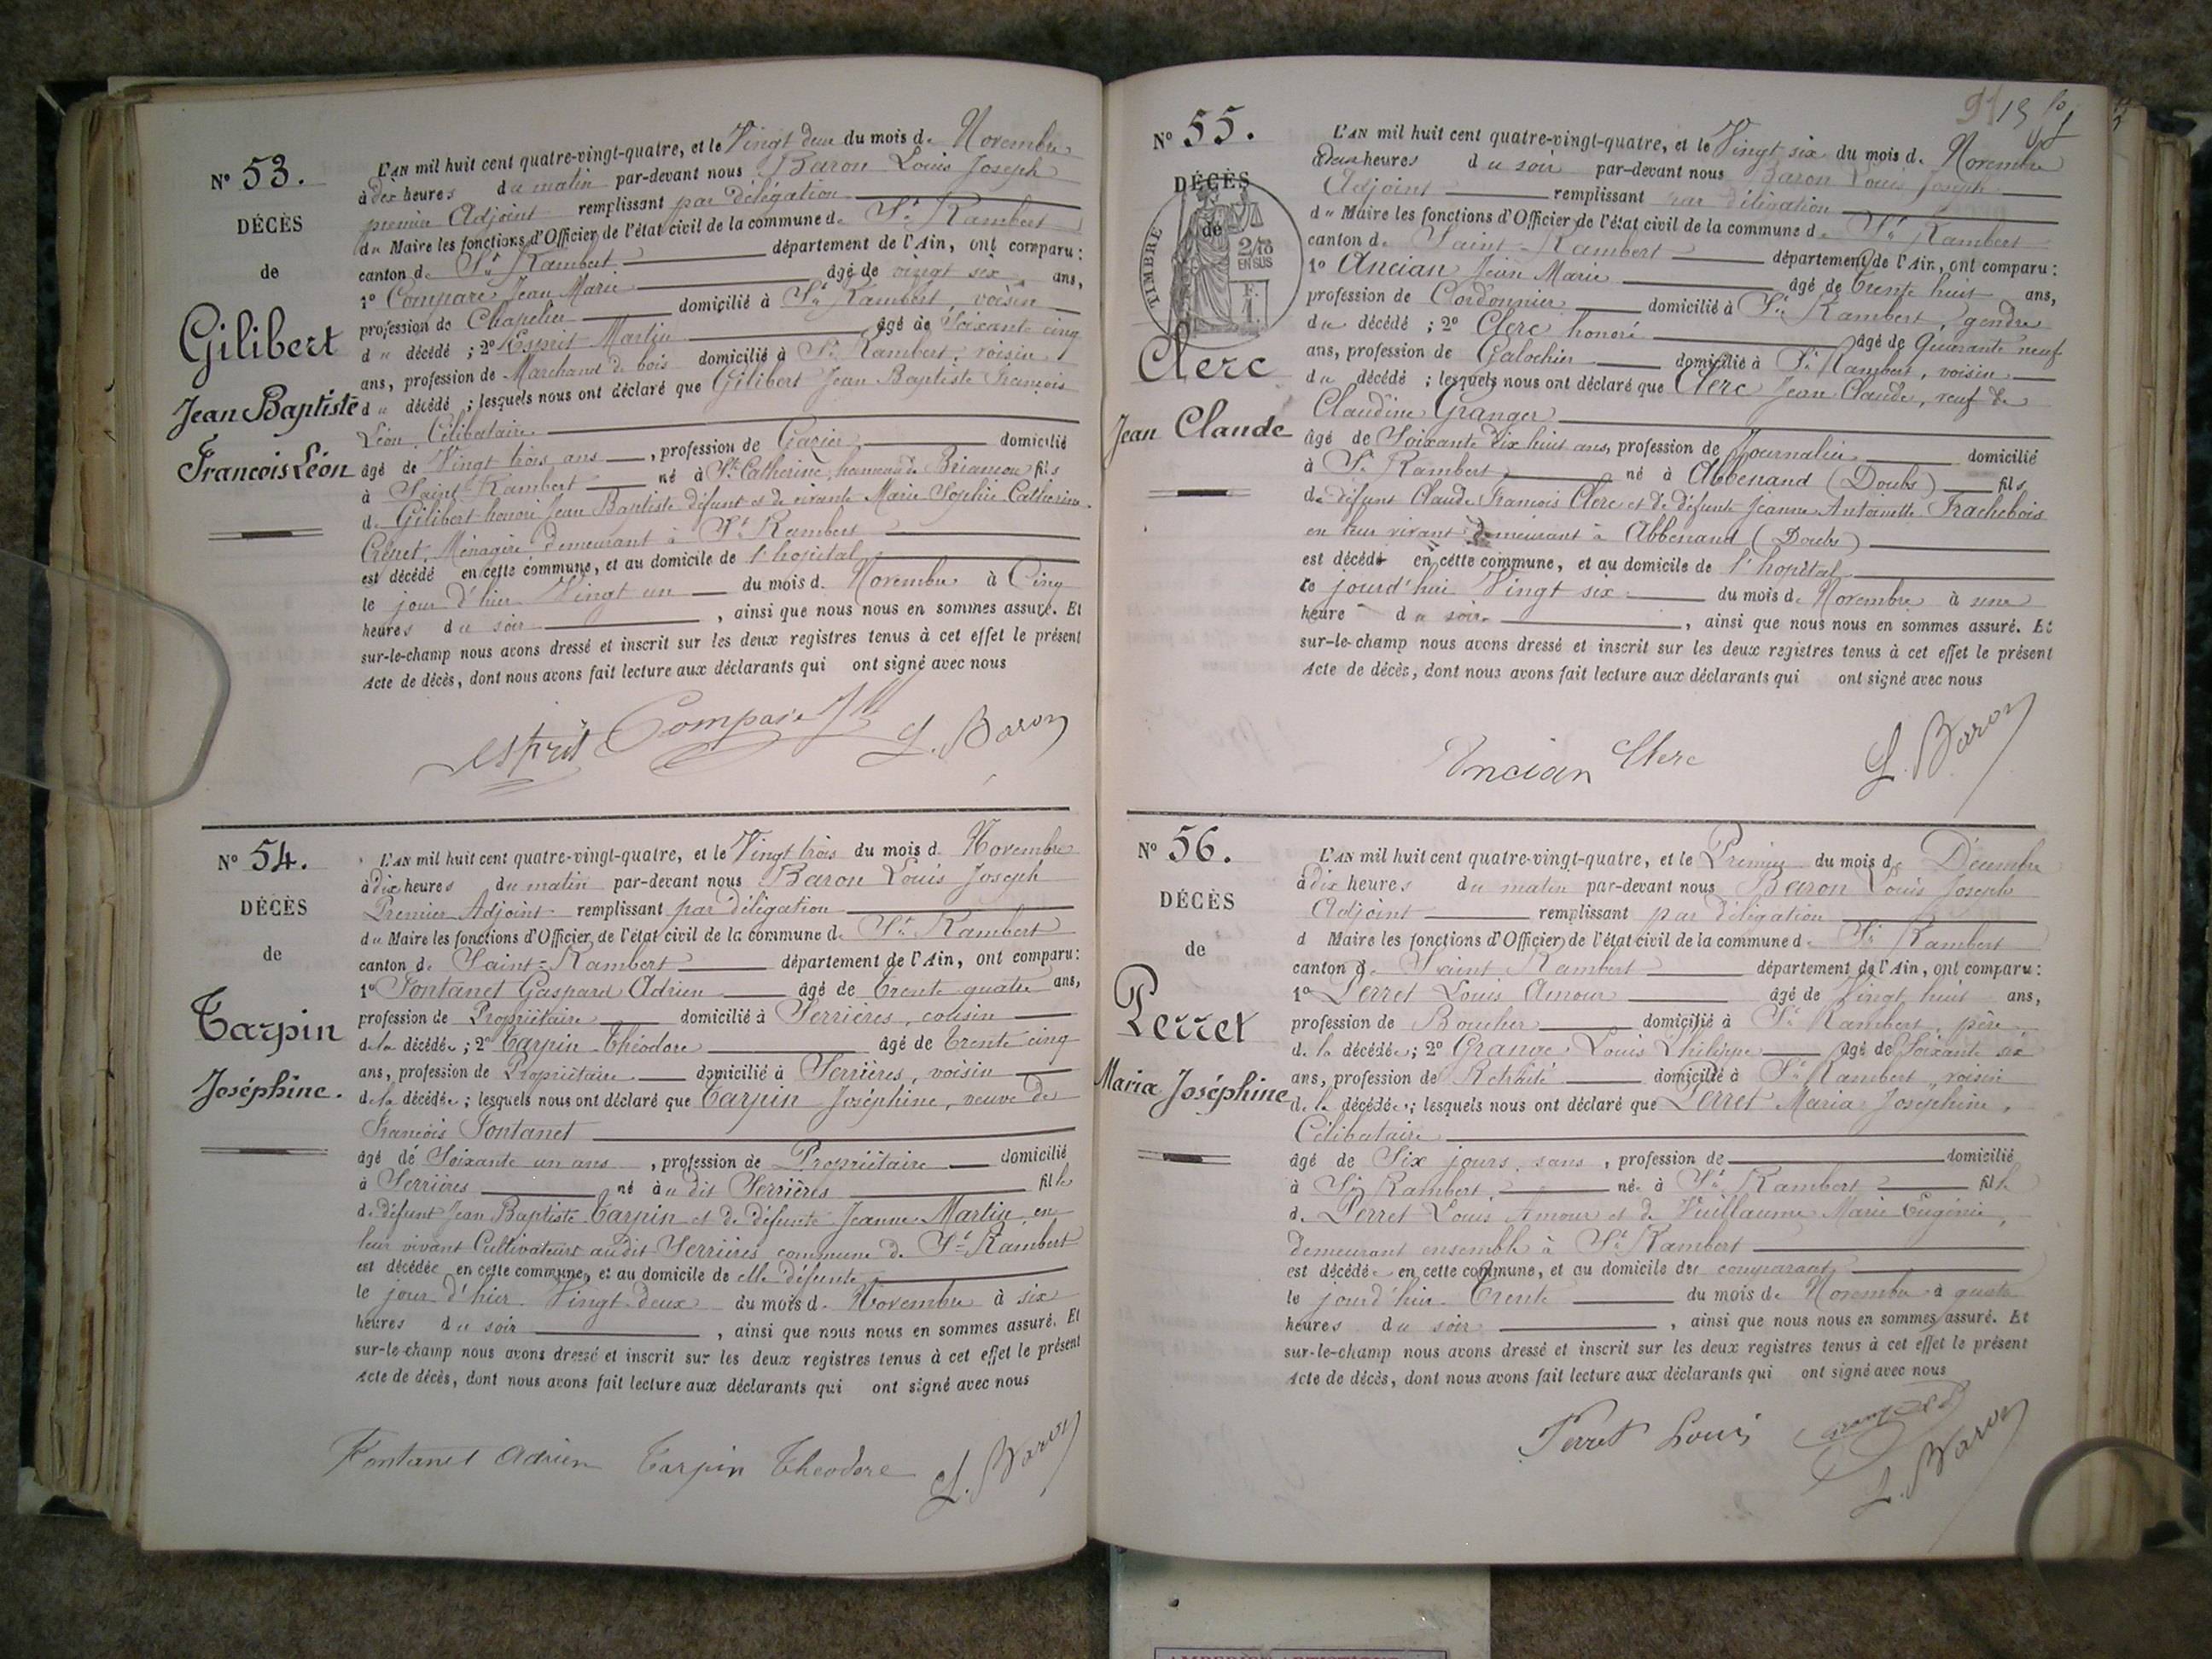 N° 53.
DÉCÈS
de
Gilibert
Jean Baptiste
François Léon
L'AN mil huit cent quatre-vingt-quatre, et le Vingt deux du mois de Novembre
à dix heures du matin par-devant nous Baron Louis Joseph
premier Adjoint remplissant par délégation
du Maire les fonctions d'Officier de l'état civil de la commune de St Rambert
canton de St Rambert département de l'Ain, ont comparu :
1° Compare Jean Marie âgé de vingt six ans,
profession de Chapelier domicilié à St Rambert, voisin
du décédé ; 2° Esprit Martin âgé de Soixante cinq
ans, profession de Marchand de bois domicilié à St Rambert, voisin
du décédé ; lesquels nous ont déclaré que Gilibert Jean Baptiste François
Léon, Célibataire
âgé de Vingt trois ans, profession de Gazier domicilié
à Saint Rambert né à Ste Catherine, hameau de Briançon fils
de Gilibert honoré Jean Baptiste défunt et de vivante Marie Sophie Catherine
Ménagère demeurant à St Rambert
est décédé en cette commune, et au domicile de l'hopital
le jour d'hier Vingt un du mois de Novembre à Cinq
heures du soir, ainsi que nous nous en sommes assuré. Et
sur-le-champ nous avons dressé et inscrit sur les deux registres tenus à cet effet le présent
Acte de décès, dont nous avons fait lecture aux déclarants qui ont signé avec nous
esprit Compare JM L. Baron
N° 54.
DÉCÈS
de
Tarpin
Joséphine.
L'AN mil huit cent quatre-vingt-quatre, et le Vingt trois du mois de Novembre
à dix heures du matin par-devant nous Baron Louis Joseph
Premier Adjoint remplissant par délégation
du Maire les fonctions d'Officier de l'état civil de la commune de St Rambert
canton de Saint-Rambert département de l'Ain, ont comparu :
1° Fontanet Gaspard Adrien âgé de trente quatre ans,
profession de Propriétaire domicilié à Serrières, cousin
de la décédée ; 2° Tarpin Théodore âgé de trente cinq
ans, profession de Propriétaire domicilié à Serrières, voisin
de la décédée ; lesquels nous ont déclaré que Tarpin Joséphine, veuve de
François Fontanet
âgé de Soixante un ans, profession de Propriétaire domicilié
à Serrières né au dit Serrières fille
de défunt Jean Baptiste Tarpin et de défunte Jeanne Martin, en
leur vivant Cultivateurs audit Serrières commune de St Rambert
est décédée en cette commune, et au domicile de elle défunte
le jour d'hier Vingt-deux du mois de Novembre à six
heures du soir, ainsi que nous nous en sommes assuré. Et
sur-le-champ nous avons dressé et inscrit sur les deux registres tenus à cet effet le présent
Acte de décès, dont nous avons fait lecture aux déclarants qui ont signé avec nous
Fontanet adrien Tarpin Theodore L. Baron
N° 55.
DÉCÈS
de
TIMBRE
2/10
EN SUS
F.
1.
Clerc
Jean Claude
L'AN mil huit cent quatre-vingt-quatre, et le Vingt six du mois de Novembre
à deux heures du soir par-devant nous Baron Louis Joseph
Adjoint remplissant par délégation
du Maire les fonctions d'Officier de l'état civil de la commune de St Rambert
canton de Saint-Rambert département de l'Ain, ont comparu :
1° Ancian Jean Marie âgé de trente huit ans,
profession de Cordonnier domicilié à St Rambert, gendre
du décédé ; 2° Clerc honoré âgé de quarante neuf
ans, profession de Galochier domicilié à St Rambert, voisin
du décédé ; lesquels nous ont déclaré que Clerc Jean Claude, veuf de
Claudine Granger
âgé de Soixante dix huit ans, profession de Journalier domicilié
à St Rambert né à Abbenand (Doubs) fils
de défunt Claude François Clerc et de défunte Jeanne Antoinette Frachebois
en leur vivant demeurant à Abbenand (Doubs)
est décédé en cette commune, et au domicile de l'hopital
ce jourd'hui Vingt six du mois de Novembre à une
heure du soir, ainsi que nous nous en sommes assuré. Et
sur-le-champ nous avons dressé et inscrit sur les deux registres tenus à cet effet le présent
Acte de décès, dont nous avons fait lecture aux déclarants qui ont signé avec nous
Ancian Clerc L. Baron
N° 56.
DÉCÈS
de
Perret
Maria Joséphine
L'AN mil huit cent quatre-vingt-quatre, et le Premier du mois de Décembre
à dix heures du matin par-devant nous Baron Louis Joseph
Adjoint remplissant par délégation
d Maire les fonctions d'Officier de l'état civil de la commune de St Rambert
canton de Saint Rambert département de l'Ain, ont comparu :
1° Perret Louis Amour âgé de Vingt huit ans,
profession de Boucher domicilié à St Rambert, père
de la décédée ; 2° Grange Louis Philippe âgé de Soixante six
ans, profession de Retraité domicilié à St Rambert, voisin
de la décédée ; lesquels nous ont déclaré que Perret Maria Joséphine,
Célibataire
âgé de Six jours, sans, profession de domicilié
à St Rambert, née à St Rambert fille
de Perret Louis Amour et de Vuillaume Marie Eugénie,
demeurant ensemble à St Rambert
est décédée en cette commune, et au domicile du comparant
le jour d'hier Trente du mois de Novembre à quatre
heures du soir, ainsi que nous nous en sommes assuré. Et
sur-le-champ nous avons dressé et inscrit sur les deux registres tenus à cet effet le présent
Acte de décès, dont nous avons fait lecture aux déclarants qui ont signé avec nous
Perret Louis L. Baron